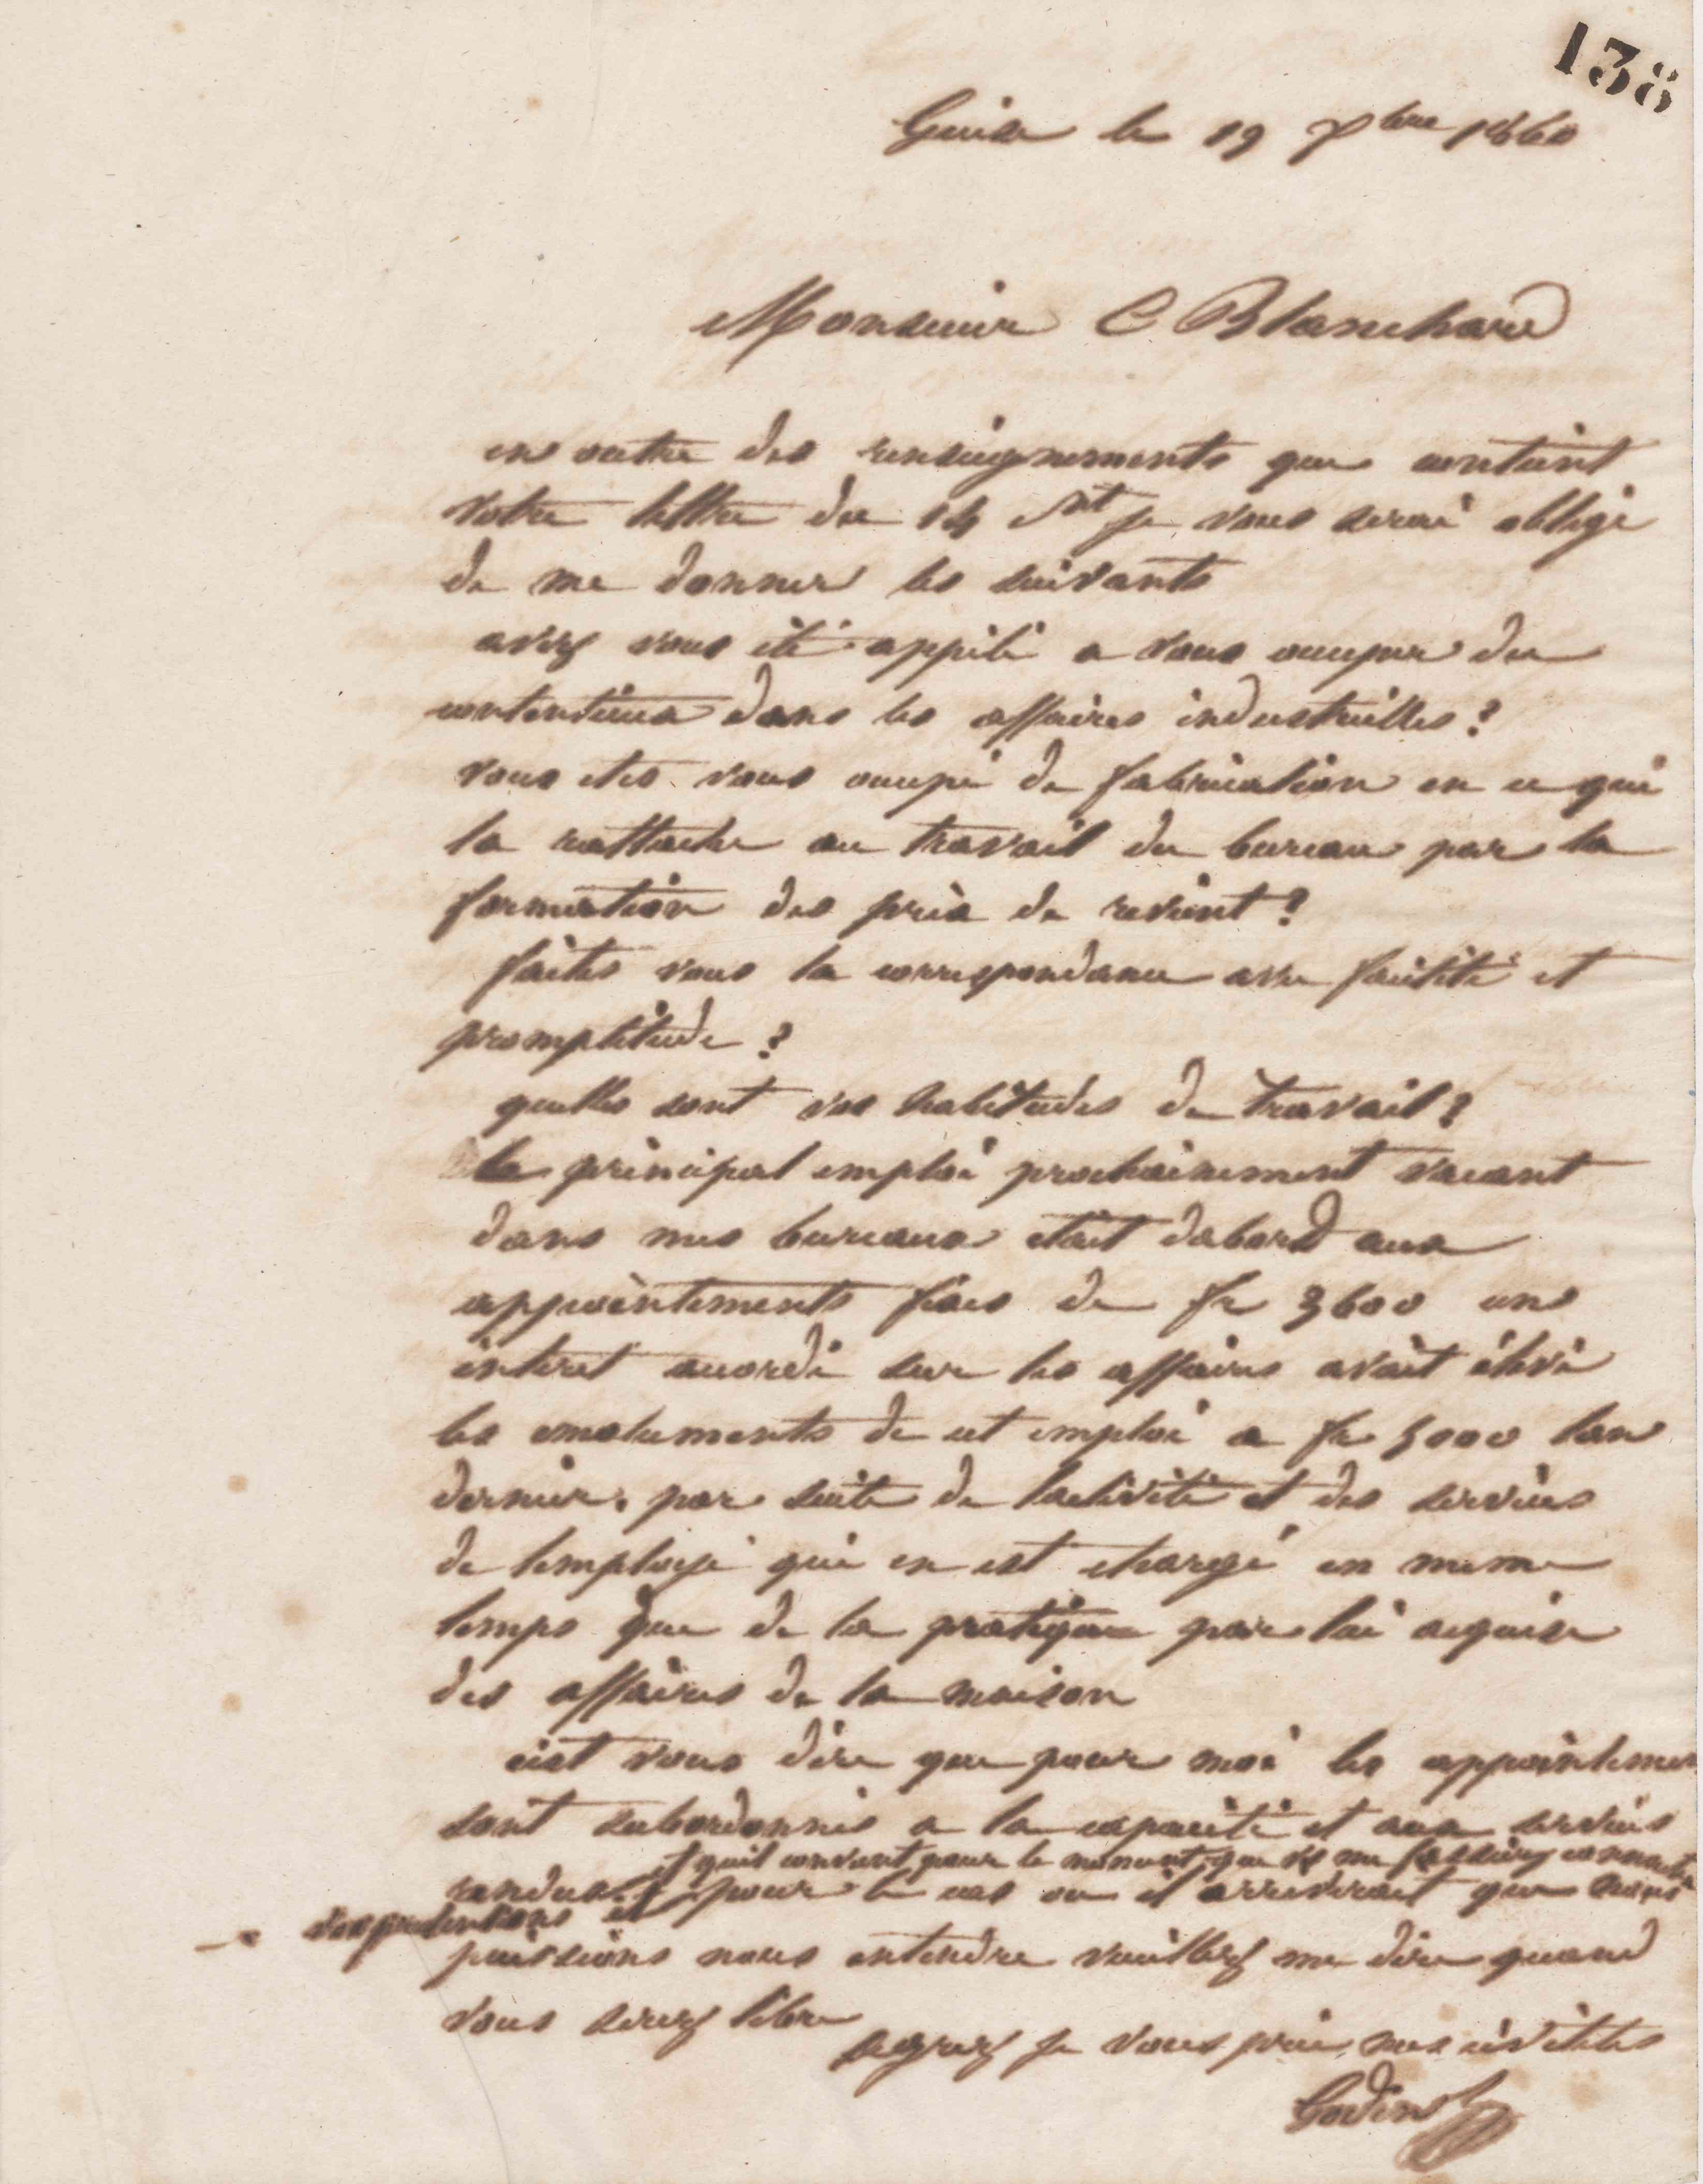 138
Guise le 19 7bre 1860
Monsieur C Blanchard
en outre des renseignements que contient
votre lettre du 14 ct je vous serai obligé
de me donner les suivants
avez vous été appélé a vous occuper du
contentieux dans les affaires industrielles ?
vous etes vous occupé de fabrication en ce qui
la rattache au travail du bureau par la
formation des prix de revient ?
faites vous la correspondance avec facilité et
promptitude ?
quelles sont vos habitudes de travail ?
le principal emploi prochainement vacant
dans mes bureaux etait dabord aux
appointements fixes de fr 3600 un
interet accordé sur les affaires avait élevé
les emoluments de cet emploi a fr 5000 lan
dernier. par suite de lactivité et des services
de lemployé qui en est chargé en meme
temps que de la pratique par lui acquise
des affaires de la maison
cest vous dire que pour moi les appointemen
sont subordonnés a la capacité et aux services
rendus et quil convient pour le moment que vs me fassiez connaitre
vos pretentions et pour le cas ou il arriverait que nous
puissions nous entendre veuillez me dire quand
vous serez libre
agreez je vous prie mes civilités
Godin